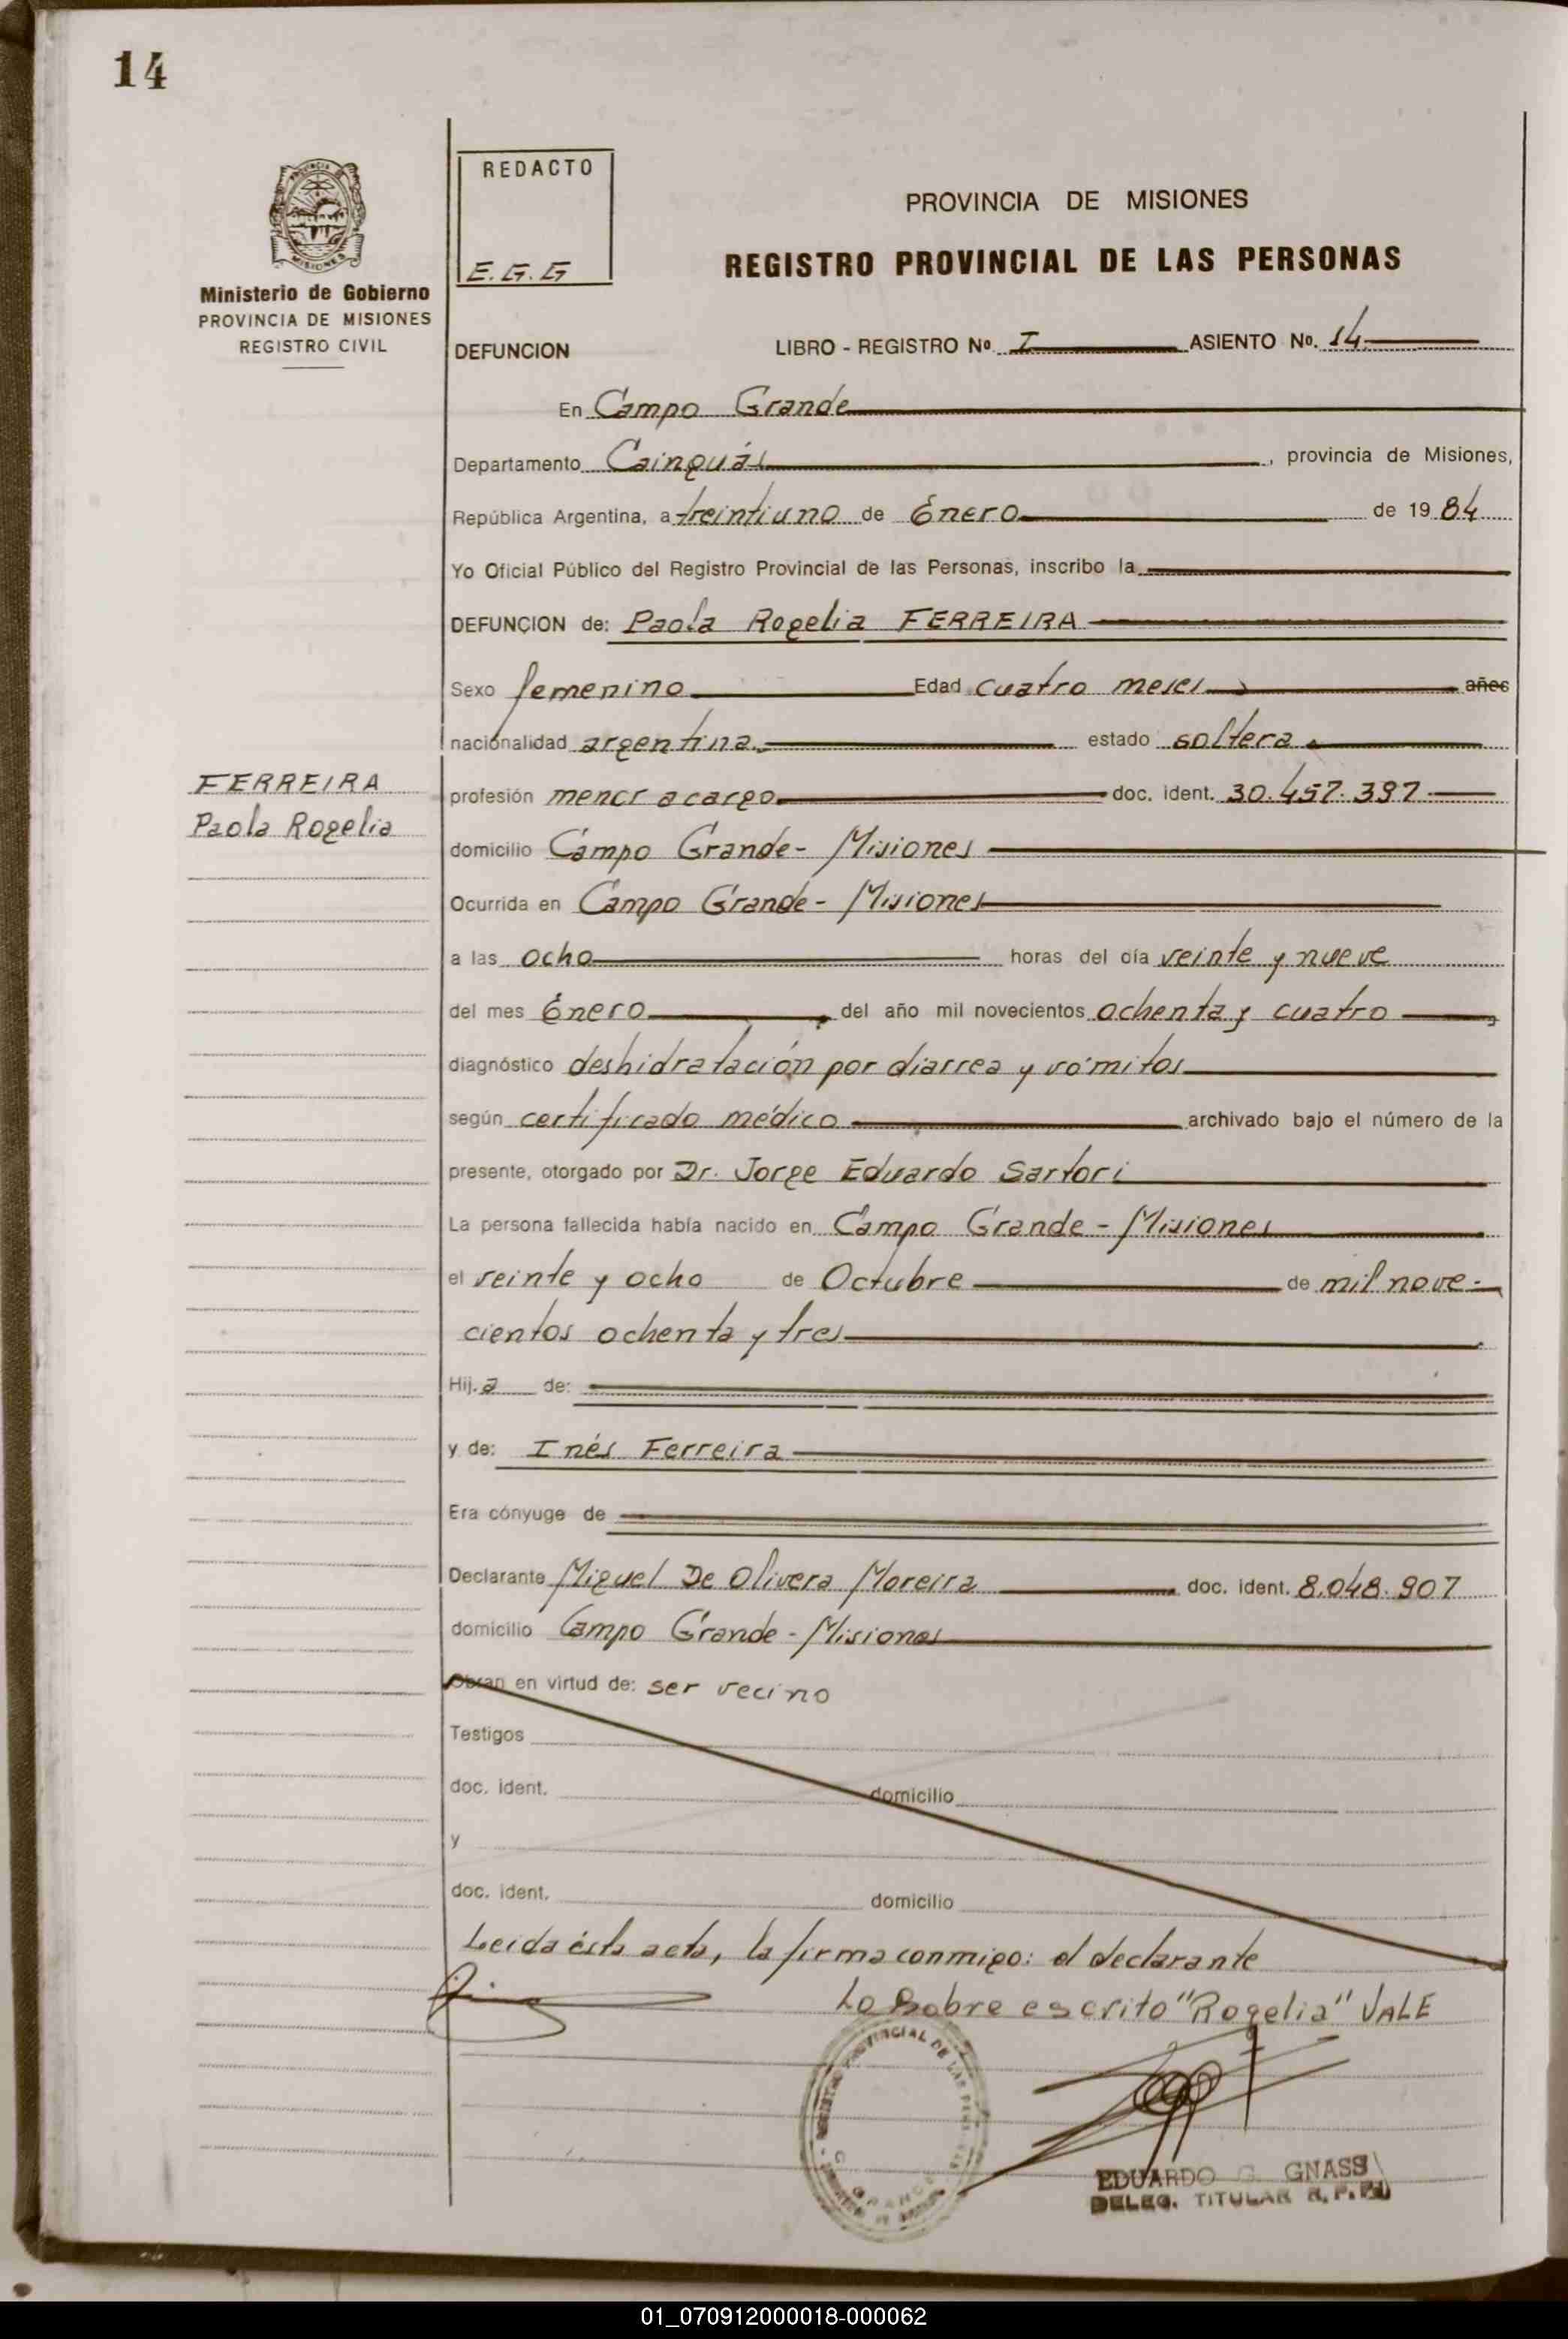 14
REDACTO
E.G.G
PROVINCIA DE MISIONES
REGISTRO PROVINCIAL DE LAS PERSONAS
MISIONES
Ministerio de Gobierno
PROVINCIA DE MISIONES
REGISTRO CIVIL
DEFUNCION LIBRO - REGISTRO Nº I ASIENTO Nº. 14
En Campo Grande
Departamento Cainguás, provincia de Misiones,
República Argentina, a treintiuno de Enero de 1984
Yo Oficial Público del Registro Provincial de las Personas, inscribo la
DEFUNCION de: Paola Rogelia FERREIRA
Sexo femenino Edad cuatro meses años
nacionalidad argentina estado soltera
FERREIRA
Paola Rogelia
profesión menor a cargo doc. ident. 30.457.397
domicilio Campo Grande - Misiones
Ocurrida en Campo Grande - Misiones
a las ocho horas del día veinte y nueve
del mes Enero del año mil novecientos ochenta y cuatro
diagnóstico deshidratación por diarrea y vómitos
según certificado médico archivado bajo el número de la
presente, otorgado por Dr. Jorge Eduardo Sartori
La persona fallecida había nacido en Campo Grande - Misiones
el veinte y ocho de Octubre de mil nove-
cientos ochenta y tres
Hij.a de:
y de: Inés Ferreira
Era cónyuge de
Declarante Miguel De Olivera Moreira doc. ident. 8.048.907
domicilio Campo Grande - Misiones
Obran en virtud de: ser vecino
Testigos
doc. ident. domicilio
y
doc. ident. domicilio
Leida ésta acta, la firma conmigo: el declarante
Lo sobre escrito "Rogelia" VALE
EDUARDO G. GNASS
DELEG. TITULAR R.P.P.
01_070912000018-000062